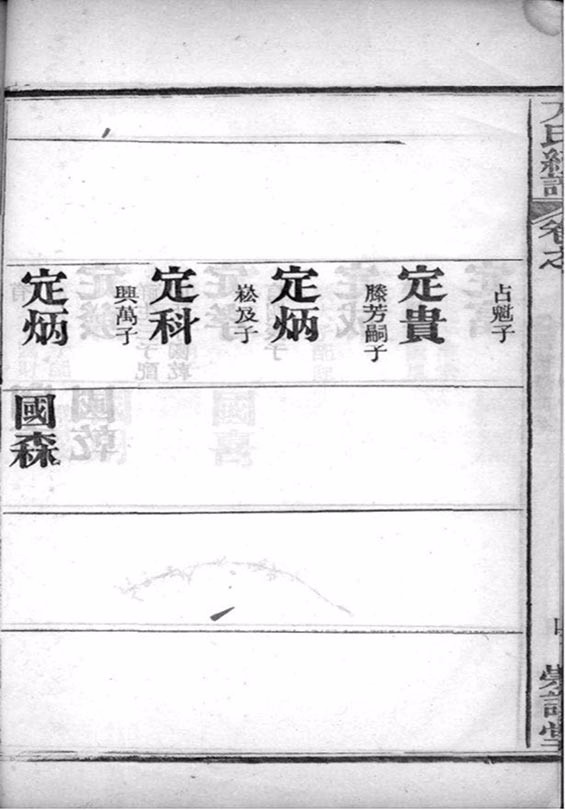 卷之
占魁子
定貴
滕芳嗣子
定炳
崧笈子
定科
興萬子
定炳
國森